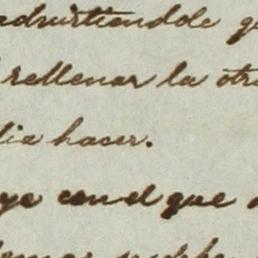 advirtiendole q
rellenar la otr
dia hacer.
yo con el que